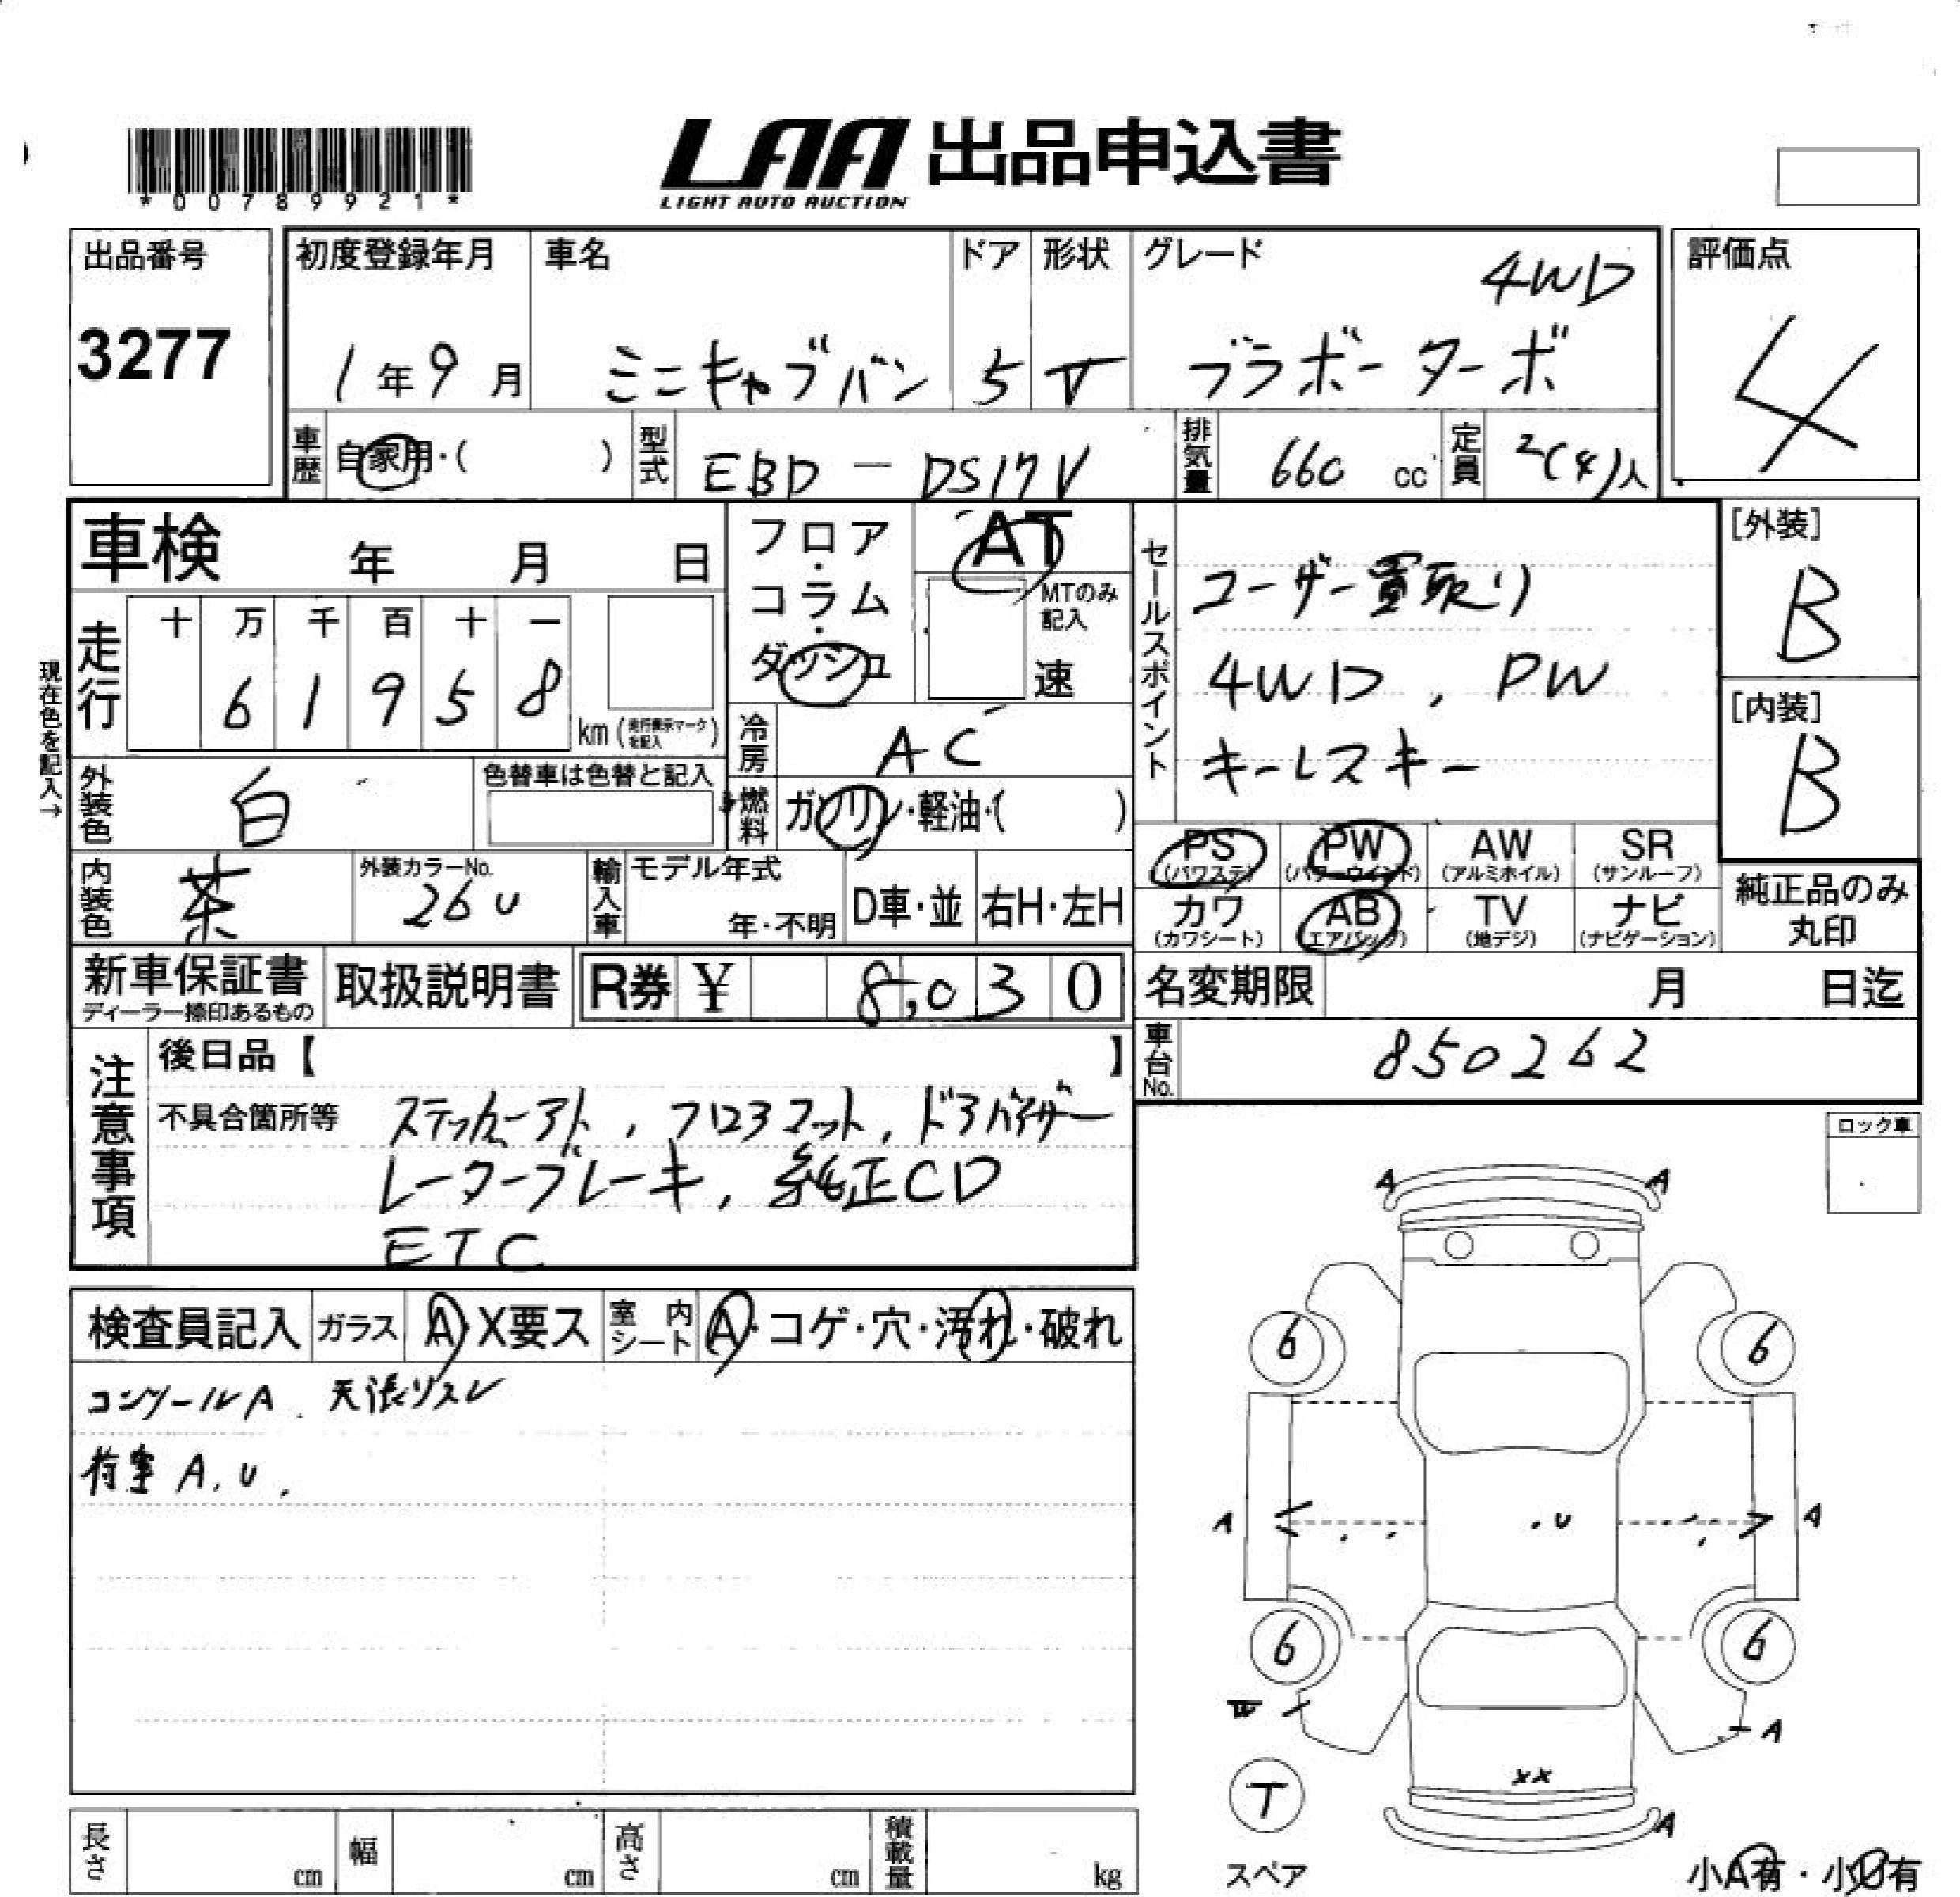 *00789921*
LAA 出品申込書
LIGHT AUTO AUCTION
出品番号
3277
初度登録年月
1年9月
車名
ミニキャブバン
ドア
5
形状
V
グレード
4WD
ブラボーターボ
評価点
4
車歴
自家用・( )
型式
EBD-DS17V
排気量
660 cc
定員
2(4)人
車検 年 月 日
現在色を記入→
走行
十 万 千 百 十 一
6 1 9 5 8
km(走行表示マークを記入)
フロア・コラム・ダッシュ
AT
MTのみ記入
速
冷房
AC
燃料
ガソリン・軽油・( )
外装色
白
色替車は色替と記入
内装色
茶
外装カラーNo.
26U
輸入車
モデル年式
年・不明
D車・並
右H・左H
セールスポイント
ユーザー買取り
4WD, PW
キーレスキー
[外装]
B
[内装]
B
PS PW AW SR
(パワステ) (パワーウインド) (アルミホイル) (サンルーフ)
カワ AB TV ナビ
(カワシート) (エアバッグ) (地デジ) (ナビゲーション)
純正品のみ
丸印
新車保証書
ディーラー捺印あるもの
取扱説明書
R券 ¥ 8,030
名変期限 月 日迄
車台No.
850262
注意事項
後日品【 】
不具合箇所等
ステッカーアト, フロアマット, ドアバイザー
レーダーブレーキ, 純正CD
ETC
ロック車
検査員記入
ガラス
A・X要ス
室内シート
A・コゲ・穴・汚れ・破れ
コンソールA. 天張リスレ
荷室 A.U.
A A
6 6
A U A
6 6
W A
XX
T
A
スペア
小A有・小U有
長さ cm
幅 cm
高さ cm
積載量 kg